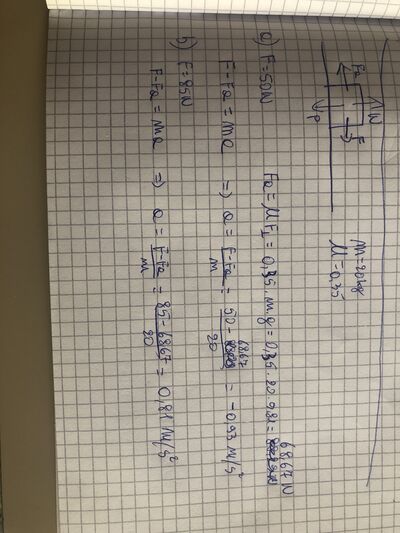 N
Fa
F
P
m=20kg
μ=0,35
a) F=50N
Fa = μF⊥ = 0,35 . m . g = 0,35 . 20 . 9,81 = 68,67 N
F-Fa = ma => a = F-Fa / m = 50 - 68,67 / 20 = -0,93 m/s²
b) F=85N
F-Fa = ma => a = F-Fa / m = 85-68,67 / 20 = 0,81 m/s²